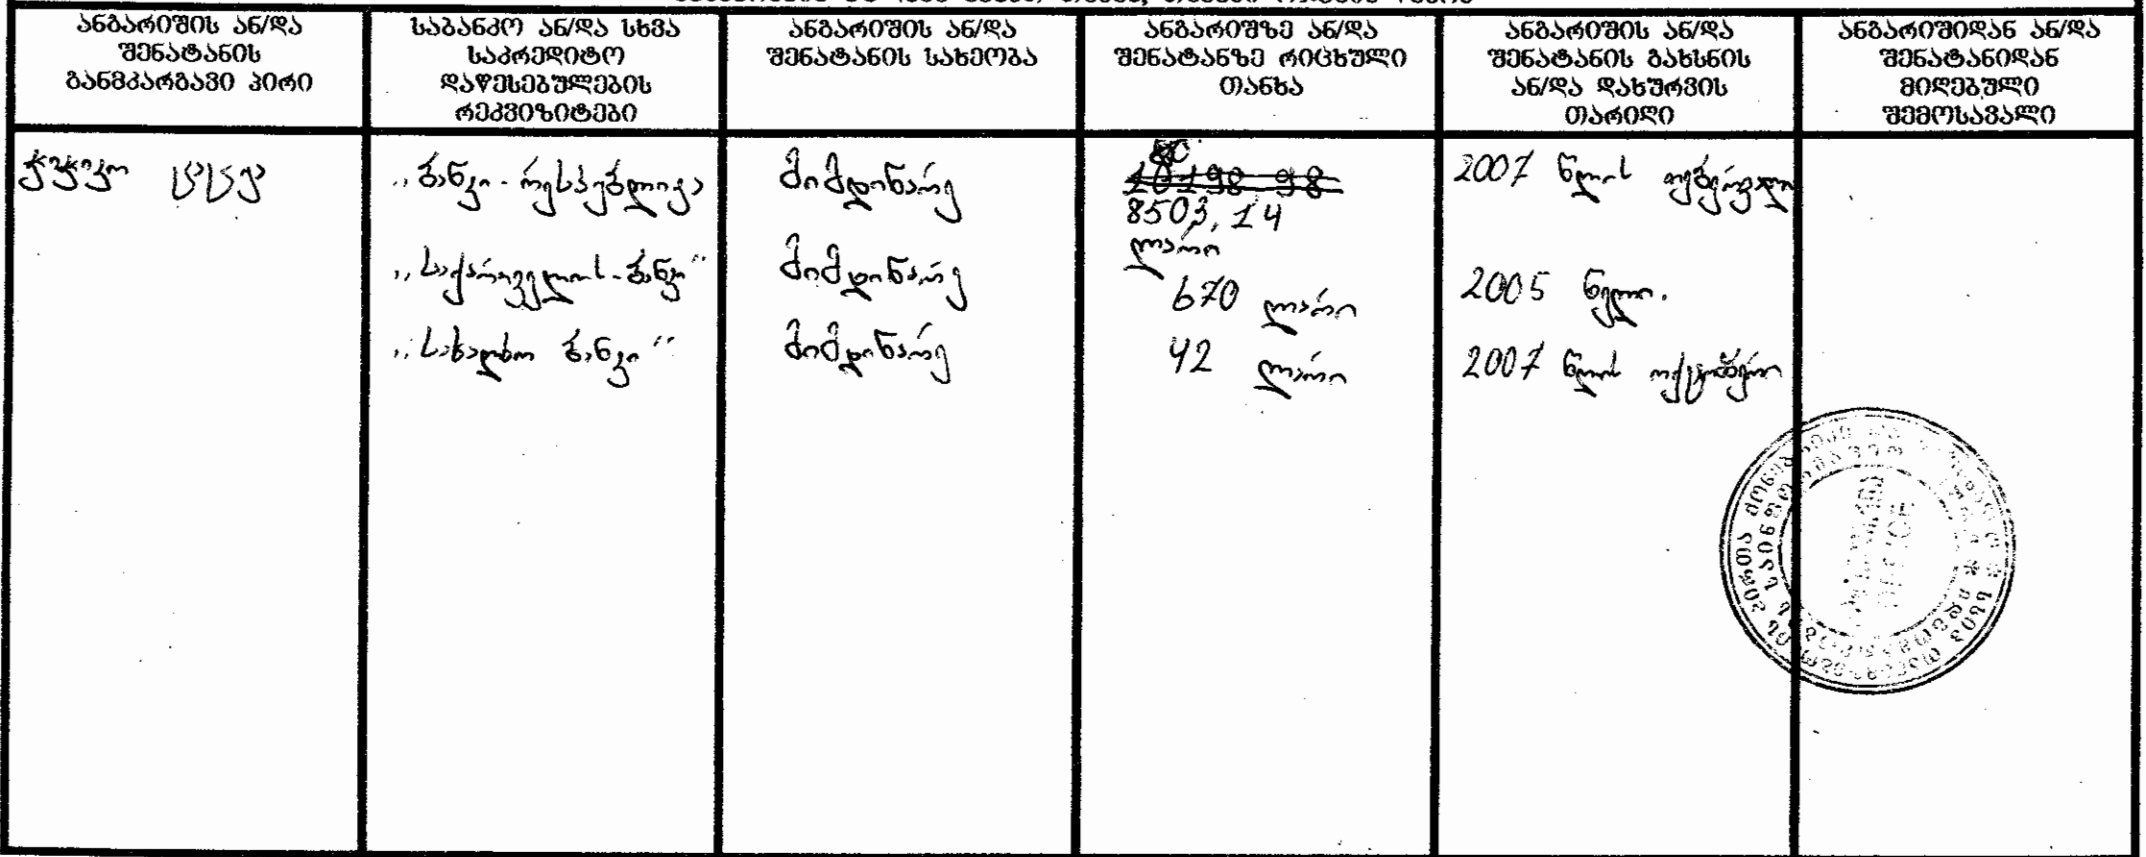 ანგარიშის ან/და
შენატანის
განმკარგავი პირი
საბანკო ან/და სხვა
საკრედიტო
დაწესებულების
რეკვიზიტები
ანგარიშის ან/და
შენატანის სახეობა
ანგარიშზე ან/და
შენატანზე რიცხული
თანხა
ანგარიშის ან/და
შენატანის გახსნის
ან/და დახურვის
თარიღი
ანგარიშიდან ან/და
შენატანიდან
მიღებული
შემოსავალი
„ბანკი-რესპუბლიკა
მიმდინარე
8503,14
ლარი
2007 წლის თებერვალი
„საქართველოს-ბანკი“
მიმდინარე
670 ლარი
2005 წელი.
„სახალხო ბანკი“
მიმდინარე
42 ლარი
2007 წლის ოქტომბერი